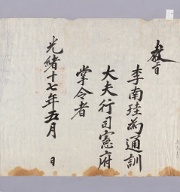 敎旨
李南珪爲通訓
大夫行司憲府
掌令者
光緖十七年五月 日